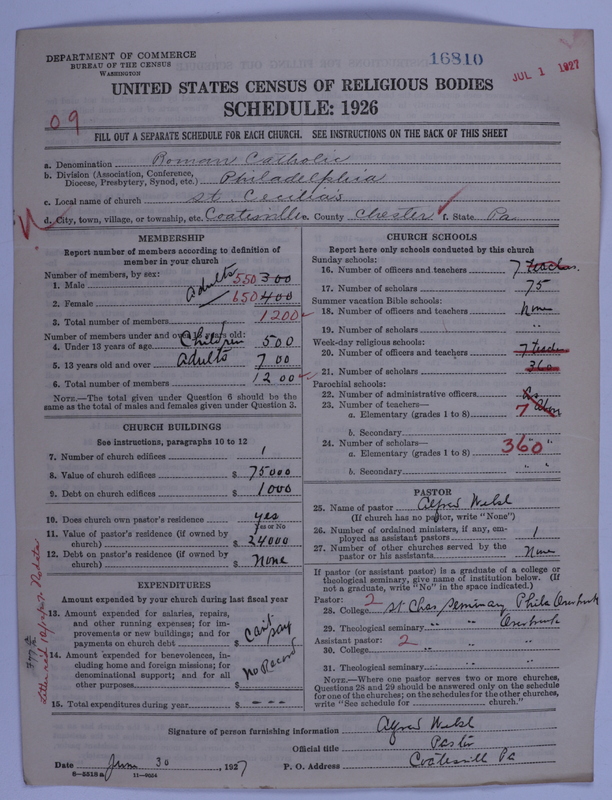 DEPARTMENT OF COMMERCE
BUREAU OF THE CENSUS
WASHINGTON
16810
JUL 1 1927
UNITED STATES CENSUS OF RELIGIOUS BODIES
SCHEDULE: 1926
09
FILL OUT A SEPARATE SCHEDULE FOR EACH CHURCH. SEE INSTRUCTIONS ON THE BACK OF THIS SHEET
a. Denomination Roman Catholic
b. Division (Association, Conference, Diocese, Presbytery, Synod, etc.) Philadelphia
c. Local name of church St. Cecilia's
d. City, town, village, or township, etc. Coatesville e. County Chester f. State Pa
MEMBERSHIP
Report number of members according to definition of
member in your church
Number of members, by sex:
1. Male adults 550 300
2. Female 650 400
3. Total number of members 1200
Number of members under and over 13 years old:
4. Under 13 years of age Children 500
5. 13 years old and over adults 700
6. Total number of members 1200
NOTE.—The total given under Question 6 should be
same as the total of males and females given under Question 3.
CHURCH BUILDINGS
See instructions, paragraphs 10 to 12
7. Number of church edifices 1
8. Value of church edifices $ 75000
9. Debt on church edifices $ 1000
10. Does church own pastor's residence yes
Yes or No
11. Value of pastor's residence (if owned by
church) $ 24000
12. Debt on pastor's residence (if owned by
church) $ None
EXPENDITURES
Amount expended by your church during last fiscal year
13. Amount expended for salaries, repairs,
and other running expenses; for im-
provements or new buildings; and for
payments on church debt $ can't say
14. Amount expended for benevolences, in-
cluding home and foreign missions; for
denominational support; and for all
other purposes $ No Record
15. Total expenditures during year $ - - -
CHURCH SCHOOLS
Report here only schools conducted by this church
Sunday schools:
16. Number of officers and teachers 7 teachers
17. Number of scholars 75
Summer vacation Bible schools:
18. Number of officers and teachers None
19. Number of scholars "
Week-day religious schools:
20. Number of officers and teachers 7 teach
21. Number of scholars 360
Parochial schools:
22. Number of administrative officers
23. Number of teachers—
a. Elementary (grades 1 to 8) 7
b. Secondary
24. Number of scholars—
a. Elementary (grades 1 to 8) 360 "
b. Secondary " "
PASTOR
25. Name of pastor Alfred Welsh
(If church has no pastor, write "None")
26. Number of ordained ministers, if any, em-
ployed as assistant pastors 1
27. Number of other churches served by the
pastor or his assistants None
If pastor (or assistant pastor) is a graduate of a college or
theological seminary, give name of institution below. (If
not a graduate, write "No" in the space indicated.)
Pastor: 2
28. College St Chas Seminary Phila Overbrook
29. Theological seminary " " Overbrook
Assistant pastor: 2
30. College " "
31. Theological seminary " "
NOTE.—Where one pastor serves two or more churches,
Questions 28 and 29 should be answered only on the schedule
for one of the churches; on the schedules for the other churches,
write "See schedule for church."
Signature of person furnishing information Alfred Welsh
Official title Pastor
Date June 30, 1927 P. O. Address Coatesville Pa
6-5518a 11-9054